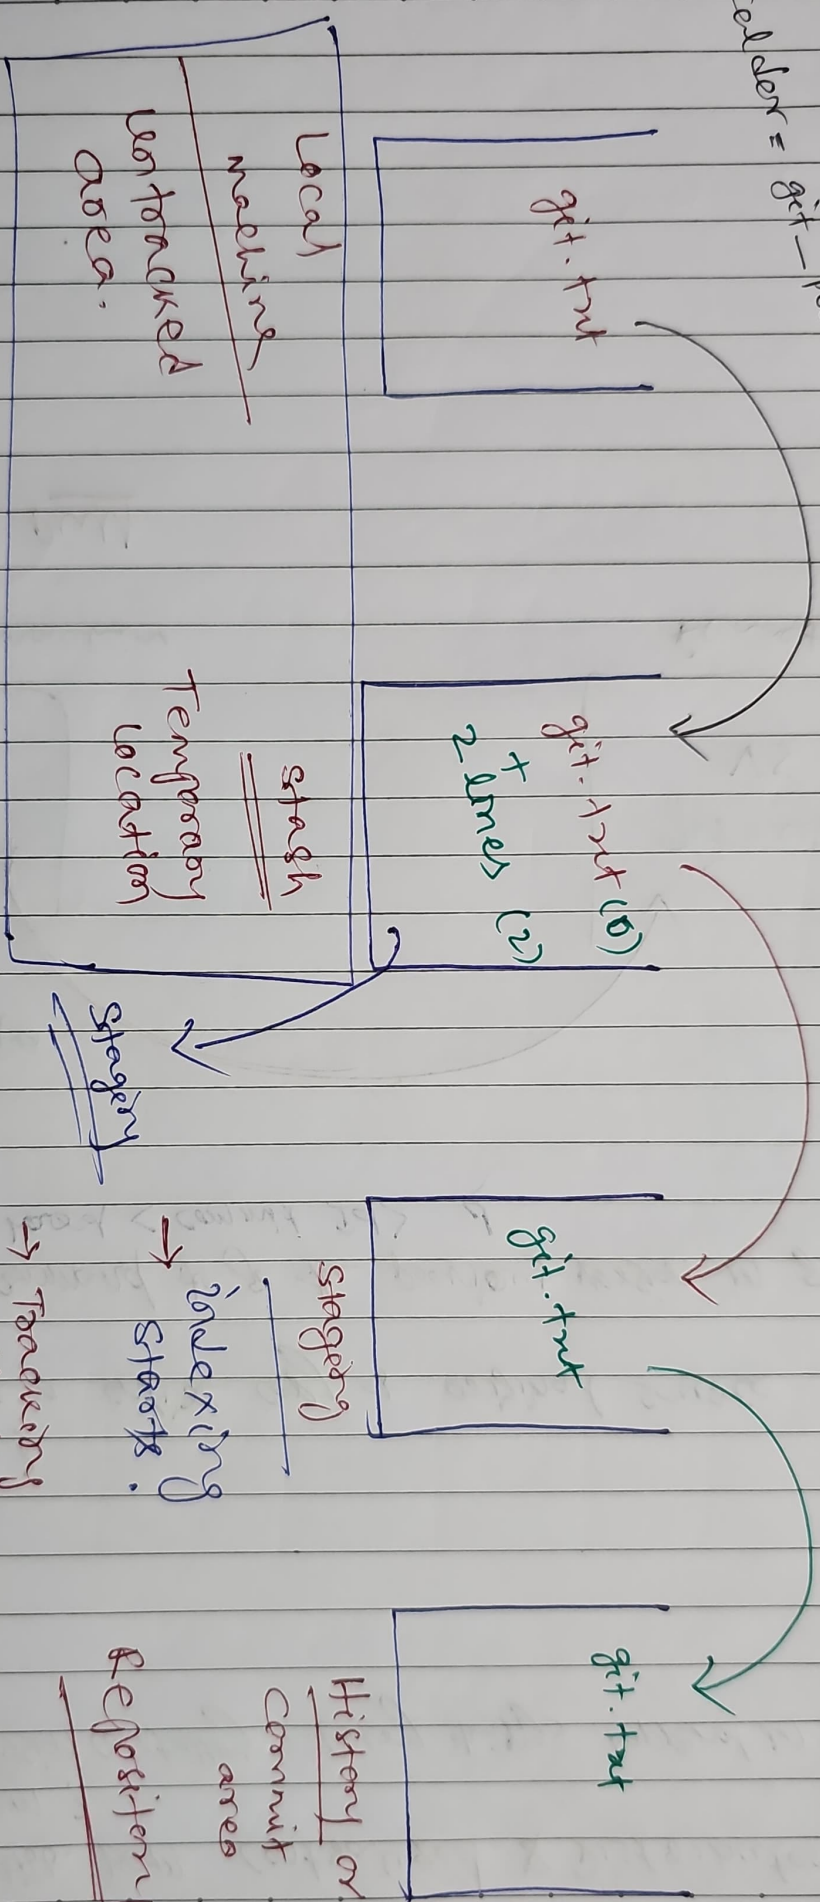 git.txt
Local
machine
untracked
area.
git.txt (0)
+
2 lines (2)
stash
Temporary
Location
staging
git.txt
staging
→ indexing
starts.
→ Tracking
git.txt
History or
commit
area